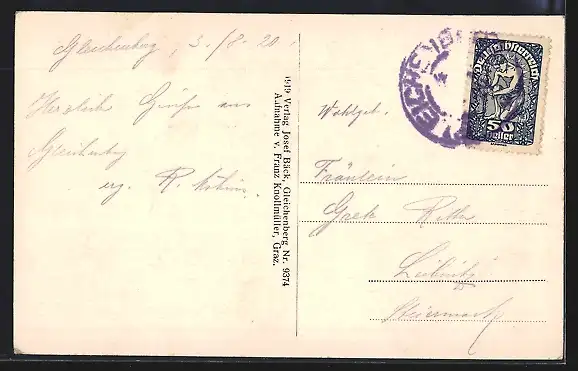 Gleichenberg, 3./8. 20.
Herzliche Grüße aus
Gleichenberg
erg. R.
1919 Verlag Josef Bäck, Gleichenberg Nr. 9374
Aufnahme v. Franz Knollmüller, Graz.
GLEICHENBERG
Deutschösterreich
50
Heller
Wohlgeb.
Fräulein
Grete Ritter
Leibnitz
Steiermark